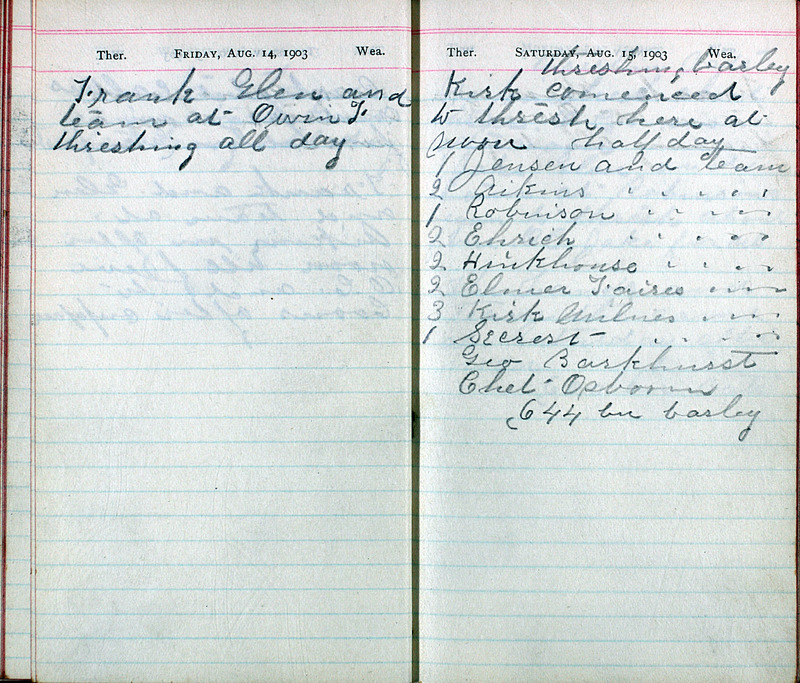 Ther. FRIDAY, AUG. 14, 1903 Wea.
Frank Glen and
team at Orvin F.
threshing all day
Ther. SATURDAY, AUG. 15, 1903 Wea.
threshing barley
Kirk comenced
to thresh here at
noon half day
1 Jensen and team
2 Aikins " " " "
1 Robinson " " " "
2 Ehrich " " " "
2 Hinkhouse " " " "
2 Elmer Faires " " "
3 Kirk Milnes " " "
1 Secrest " " "
Geo Barkhurst
Chet Osborn
644 bu barley